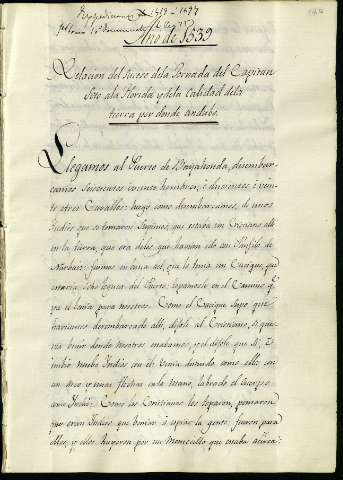 Año de 1539
Relacion del Suceso dela Jornada del Capitan
Soto ala Florida y dela Calidad dela
tierra por donde andubo.
Llegamos al Puerto de Bayahonda, desembar-
camos Seiscientos veinte hombres, é duscientos é vein-
te otres Cavallos: luego como desembarcamos, de unos
Indios que se tomaron Supimos, que estava un Cristiano alli
en la tierra, que era delos que havian ido con Panfilo de
Narbaez: fuimos en busca del, que le tenia un Cacique, que
estaria ocho leguas del Puerto, topamosle en el Camino q.
ya el benia para nosotros. Como el Cacique supo que
haviamos desembarcado alli, dijole al Cristiano, si que-
ria benir donde nosotros estabamos, y el dijole que Si, é
imbio nuebe Indios con el. Venia desnudo como ellos, con
un Arco é unas flechas en la mano, labrado el cuerpo
como Indio. Como los Cristianos los toparon, pensaron
que eran Indios que benian á espiar la gente, fueron para
ellos, y ellos huyeron por un Montecillo que estaba acerca: